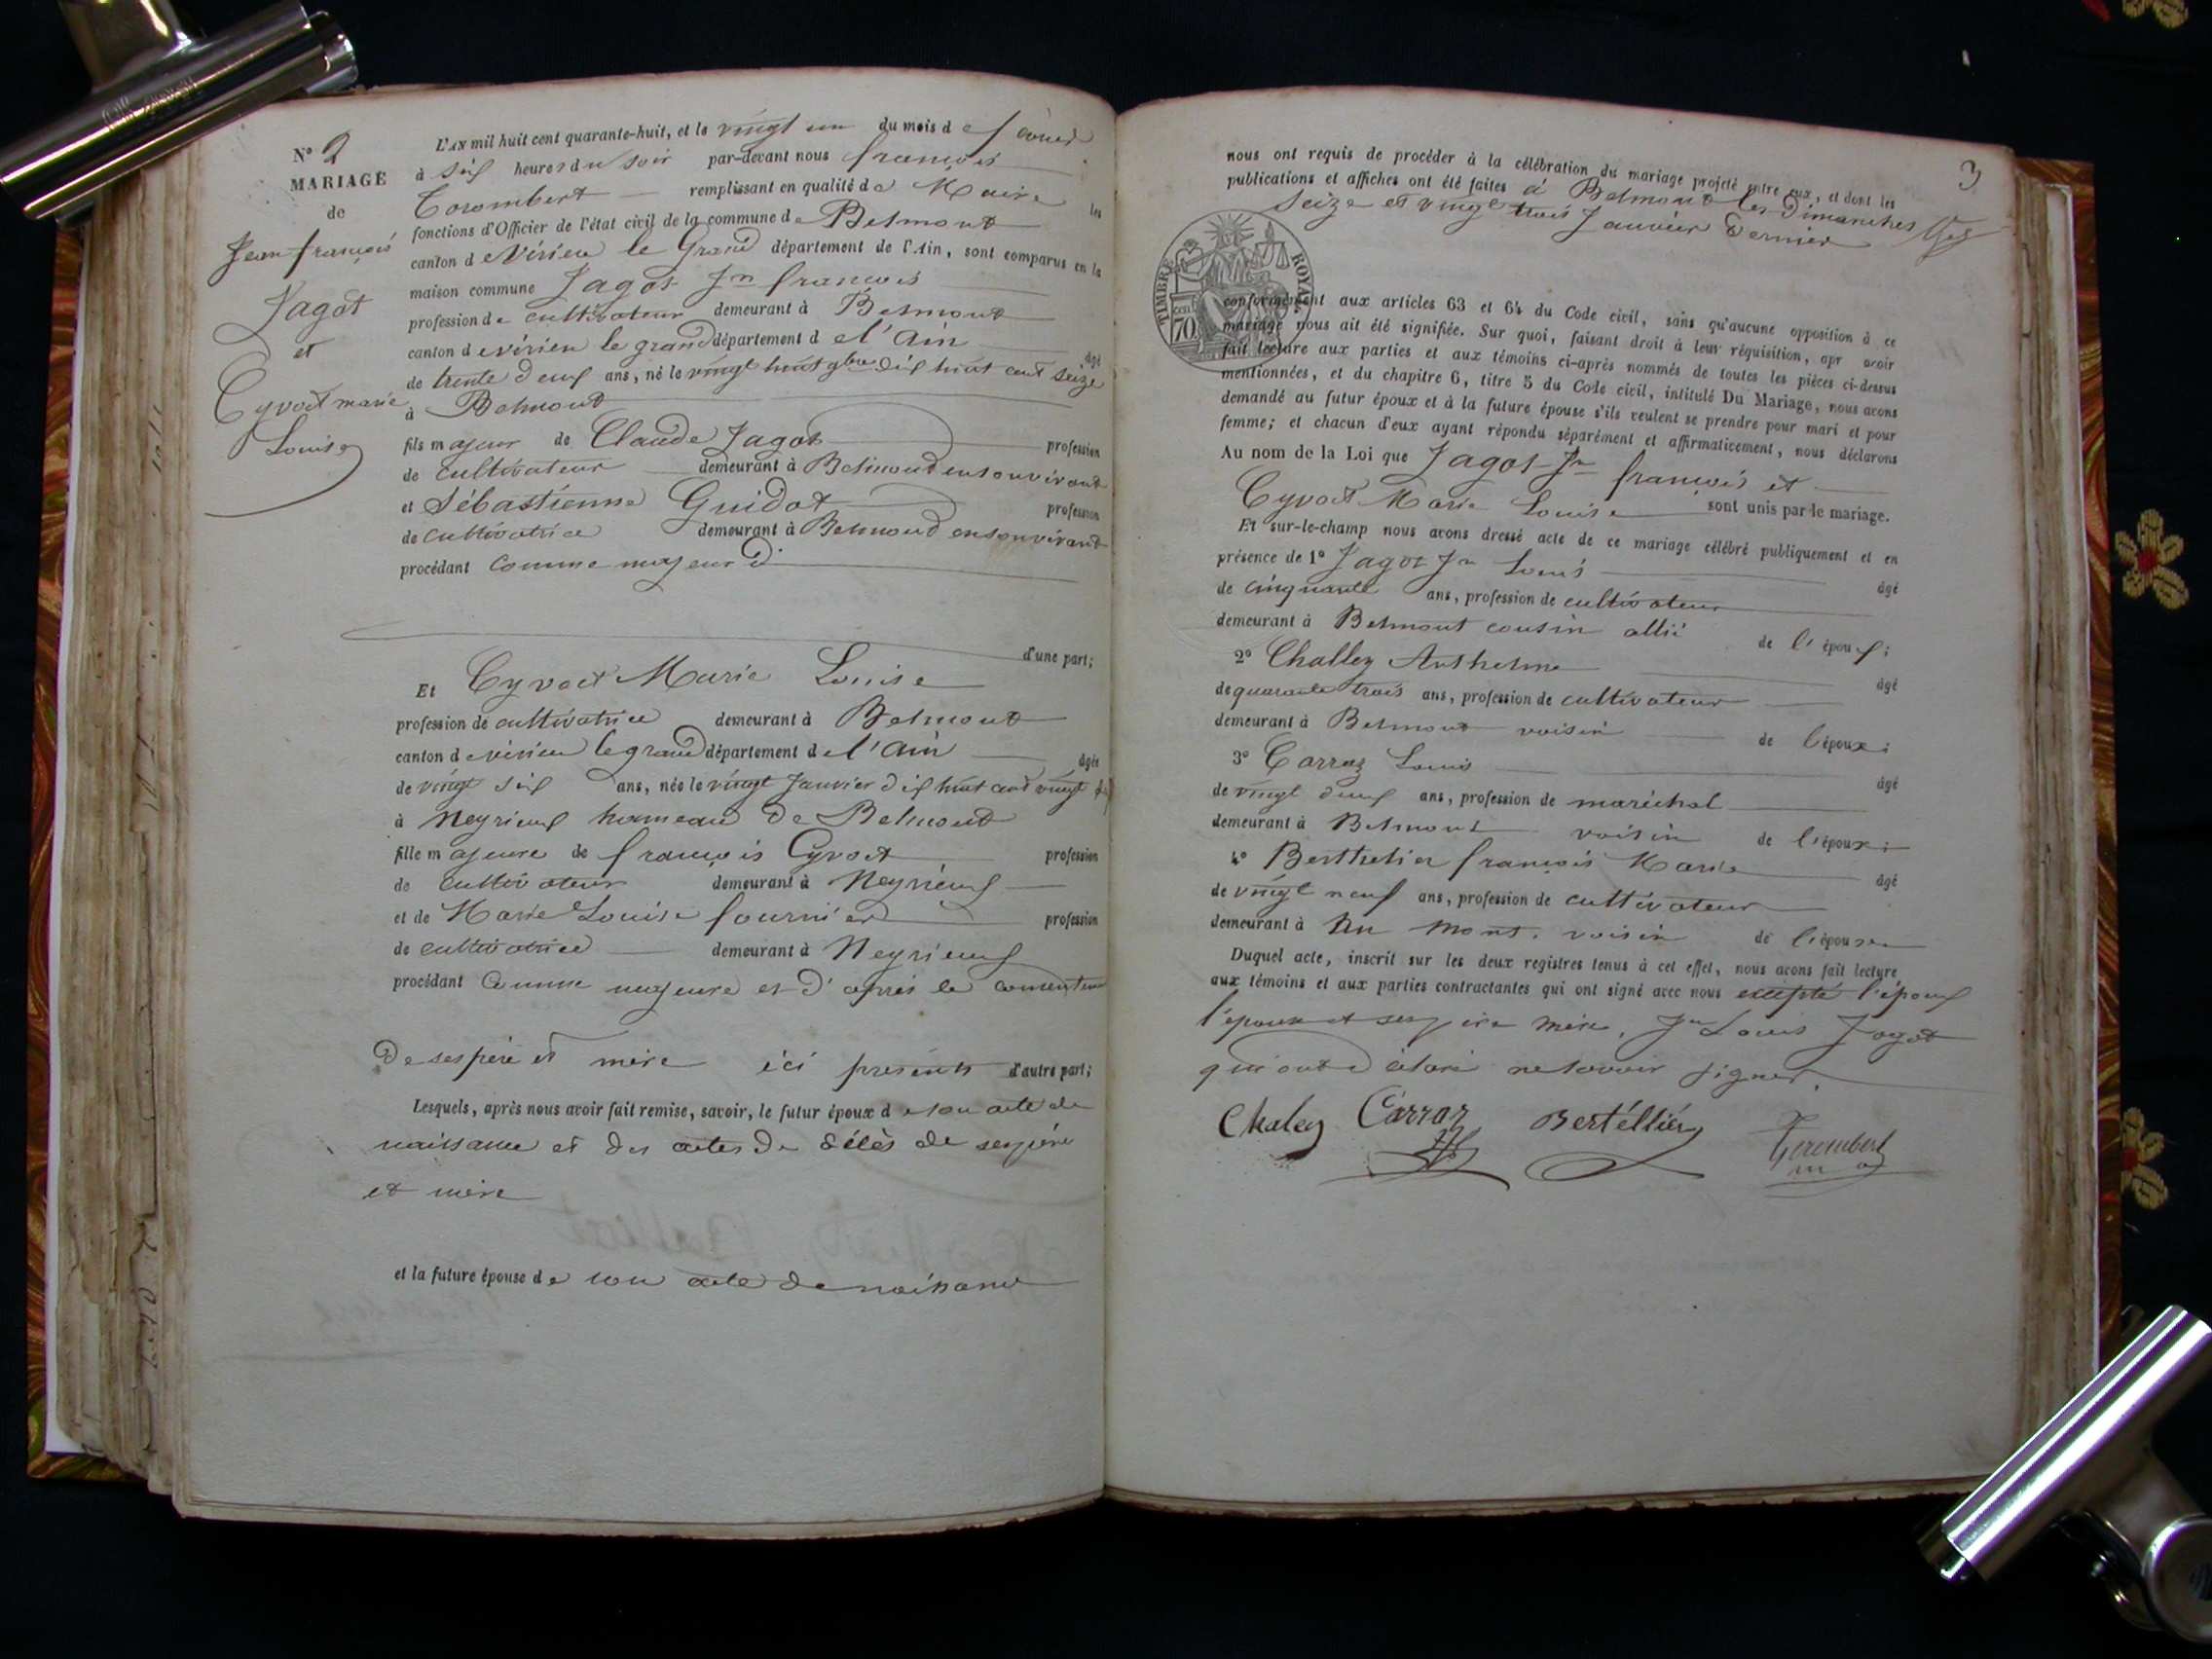 N° 2
MARIAGE
de
Jean françois
Jagot
et
Cyvoct marie
Louise
L'AN mil huit cent quarante-huit, et le vingt un du mois de
à six heures du soir par-devant nous françois
Corombert remplissant en qualité de Maire les
fonctions d'Officier de l'état civil de la commune de Belmont
canton de Virieu le Grand département de l'Ain, sont comparus en la
maison commune Jagot Jn françois
profession de cultivateur demeurant à Belmont
canton de virieu le grand département de l'Ain âgé
de trente deux ans, né le vingt huit 9bre dix huit cent seize
à Belmont
fils majeur de Claude Jagot profession
de cultivateur demeurant à Belmont en son vivant
et Sébastienne Guidot profession
de cultivatrice demeurant à Belmond en son vivant
procédant comme majeur
d'une part;
Et Cyvoct Marie Louise
profession de cultivatrice demeurant à Belmont
canton de virieu le grand département de l'Ain âgée
de vingt six ans, née le vingt Janvier dix huit cent vingt
à Neyrieux hameau de Belmont
fille majeure de françois Cyvoct profession
de cultivateur demeurant à Neyrieux
et de Marie Louise fournier profession
de cultivatrice demeurant à Neyrieux
procédant comme majeure et d'après le
de ses père et mère ici présents d'autre part;
Lesquels, après nous avoir fait remise, savoir, le futur époux de son acte de
naissance et des actes de délès de ses père
et mère
et la future épouse de son acte de naissance
3
nous ont requis de procéder à la célébration du mariage projeté entre eux, et dont les
publications et affiches ont été faites à Belmont les Dimanches
seize et vingt trois Janvier dernier
TIMBRE ROYAL
CEN. 70
conformément aux articles 63 et 64 du Code civil, sans qu'aucune opposition à ce
mariage nous ait été signifiée. Sur quoi, faisant droit à leur réquisition, apr avoir
fait lecture aux parties et aux témoins ci-après nommés de toutes les pièces ci-dessus
mentionnées, et du chapitre 6, titre 5 du Code civil, intitulé Du Mariage, nous avons
demandé au futur époux et à la future épouse s'ils veulent se prendre pour mari et pour
femme; et chacun d'eux ayant répondu séparément et affirmativement, nous déclarons
Au nom de la Loi que Jagot Jn françois et
Cyvoct Marie Louise sont unis par le mariage.
Et sur-le-champ nous avons dressé acte de ce mariage célébré publiquement et en
présence de 1° Jagot Jn Louis âgé
de cinquante ans, profession de cultivateur
demeurant à Belmont cousin allié de l'époux;
2° Challey Anthelme âgé
de quarante trois ans, profession de cultivateur
demeurant à Belmont voisin de l'époux;
3° Carraz Louis âgé
de vingt deux ans, profession de maréchal
demeurant à Belmont voisin de l'époux;
4° Berthelier françois Marie âgé
de vingt neuf ans, profession de cultivateur
demeurant à mont. voisin de l'épouse
Duquel acte, inscrit sur les deux registres tenus à cet effet, nous avons fait lecture
aux témoins et aux parties contractantes qui ont signé avec nous excepté l'époux
l'épouse et ses père mère, Jn Louis Jagot
qui ont déclaré ne savoir signer.
Chaley Carraz Bertéllier Corombert